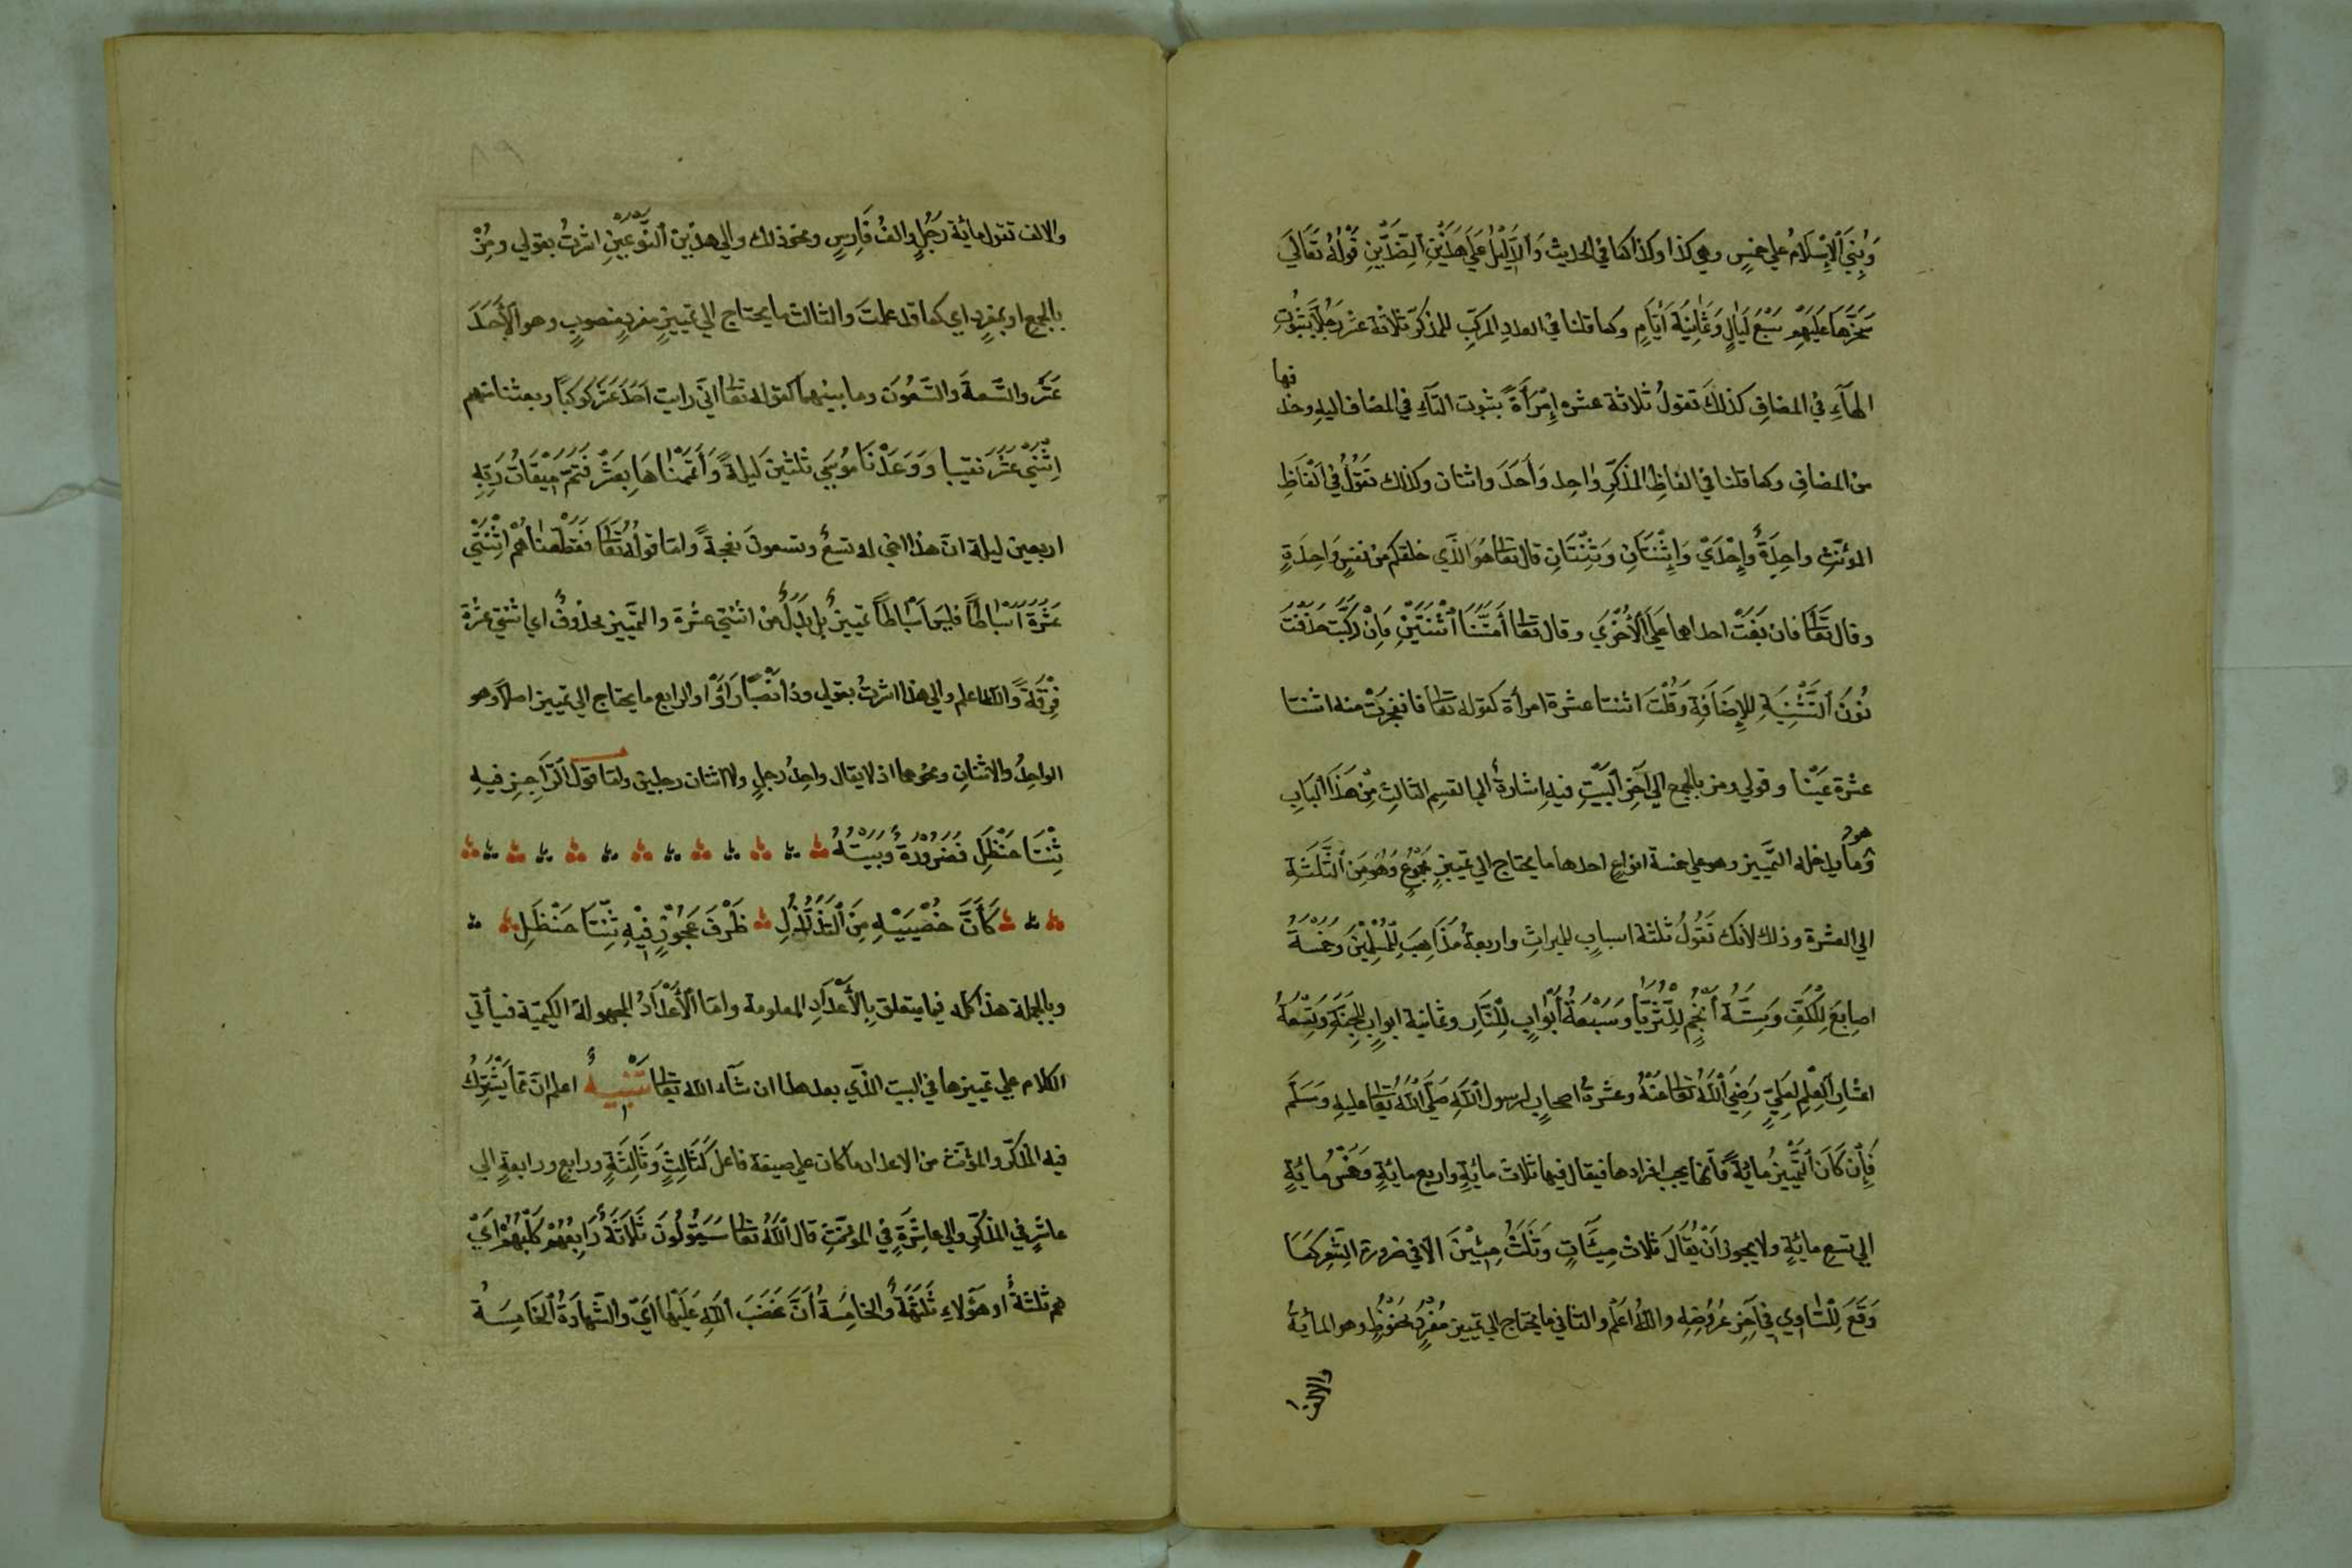 وَبُنِيَ ٱلْإِسْلَامُ علي خمسٍ وهي كذا وكذا كما في الحديث وَٱلدَّلِيْلُ عَلَي هٰذَيْنِ ٱلضِّدَّيْنِ قَوْلُهُ تَعَالَيٰ
سَخَّرَهَا عَلَيْهِمْ سَبْعَ لَيَالٍ وَثَمَانِيَةَ اَيَّامٍ وكما قلنا في العددِ المركبِ للمذكرّ ثلاثة عشر رجلًا بثبوتِ
الهآءِ في المضافِ كذلكَ تقولُ ثلاثة عشره إِمْرَأَةً بثبوت التآءِ في المضاف اليهِ وحذ
فها
من المضافِ وكما قلنا في الفاظِ المذكّرِ واحِد وَأَحَدَ واثنان وكذلك تَقُوْلُ في اَلْفَاظِ
المؤنّثِ واحِدَةٌ وإِحْدَيْ وَاِثْنَتَانِ وَثِنْتَانِ قال تعالى هُوَ الذّي خلقكم من نفسٍ وَاحِدَةٍ
وقال تَعَالَى فان بَغَتْ احداهما عَلَي ٱلْأُخْرَي وقال تعالى أَمَتَّنَا ٱثْنَتَيْنِ وَاِنْ رَكَّبْتَ حَذَفْتَ
نُوْنَ ٱلتَّثْنِيَةِ للإِضَافَةِ وَقُلْتَ اثنتا عشرة امرأة كقوله تعالى فانفجَرَتْ منه اثنتا
عشرة عَيْنًا وقولي ومز بالجمع الي آخِرِ ٱلْبَيْتِ فيهِ اِشارةٌ الي القسمِ الثالثِ مِنْ هٰذَا ٱلبَابِ
هو
وَما يدخله التّمييز وهو علي خمسة انواعٍ احدها ما يحتاج الي تمييزٍ مَجْمُوْعٍ وَهُوَ مِنَ ٱلثَّلٰثَةِ
الي العشرة وذلك لانك تَقُوْلُ ثلثة اسبابٍ للميراثِ واربعةُ مَذَاهِبَ لِلْمُسْلِمِيْنَ وَخَمْسَةُ
اصابِعَ لِلْكَفِّ وَسِتَّةُ أَنْجُمٍ لِلثُّرَيَّا وَسَبْعَةُ أَبْوَابٍ لِلنَّارِ وثمانية ابوابٍ لِلْجَنَّةِ وَتِسْعَةُ
اعشارِ ٱلْعِلْمِ لِعَلِيٍّ رَضِيَ ٱللّٰهُ تعالى عَنْهُ وعشرةُ اصحابٍ لرسول ٱللّٰهِ صَلَّي ٱللّٰهُ تَعَالَى عليهِ وَسَلَّمَ
فَإِنْ كَانَ ٱلتَّمْيِيْزُ مِائةً فَاِنّها يجب افرادها فيقال فيها ثلاث مائةٍ واربع مائةٍ وَخَمْسُ مِائةٍ
الي تسع مائةٍ ولا يجوز أَنْ يُقَالَ ثلاث مِيئَاتٍ وَثَلٰثُ مِئِيْنَ الّا في ضرورة الشِّعرِ كَمَا
وَقَعَ لِلشَّاوِي في آخِرِ عَرُوْضِهِ واللّٰه اَعْلَم والثاني ما يحتاج الي تمييزٍ مُفْرَدٍ مَخْفُوْظٍ وهو المأيةُ
والالف
والالف تقول مائةُ رَجُلٍ والفُ فَارِسٍ ونحو ذلك والي هذين ٱلنَّوْعَيْنِ اشرتُ بقولي ومِزْ
بالجمع او بمفردٍ اي كما قد علمتَ والثالث ما يحتاج الي تمييزٍ مفردٍ منصوبٍ وهو ٱلْأَحَدَ
عَشَرَ والتّسعة وَالتِّسْعُوْنَ وما بينهما كقوله تعالى انّي رايت اَحَدَ عَشَرَ كَوْكَبًا وبعثنا منهم
اِثْنَيْ عَشَرَ نقيبا وَوٰعَدْنَا مُوْسَي ثلثين ليلةً وَأَتْمَمْنَاهَا بِعَشْرٍ فَتَمَّ مِيْقَاتُ رَبِّهِ
اربعين ليلة انّ هذا اخي له تسعٌ وتسعونَ نعجةً وامّا قوله تعالى فَقَطَّعْنَاهُمُ اثْنَتَيْ
عَشْرَةَ أَسْبَاطًا فليسَ اَسْبَاطًا تمييزٌ بل بَدَلٌ من اثنتي عشرة والتّمييز محذوفٌ اي اثنتي عشرة
فِرْقَةً واللّٰه اعلم والي هذا اشرتُ بقولي وذا نَصْبًا رَاَوْا والرابع ما يحتاج الي تمييز اصلًا وهو
الواحِدُ والاثنانِ ونحوهما اذ لا يقال واحِدُ رجلٍ ولا اثنان رجلين وامّا قول ٱلرَّاجِزِ فيهِ
ثِنْتَا حَنْظَلِ فَضَرُوْرَةٌ وَبَيْتُهُ
كَأَنَّ خُصْيَيْهِ مِنَ ٱلتَّدَلْدُلِ ظَرْفَ عَجُوْزٍ فِيْهِ ثِنْتَا حَنْظَلِ
وبالجملة هذا كله فيما يتعلق بِالأَعْدَادِ المعلومة وامّا ٱلْأَعْدَادُ المجهولة الكميّة فسيأتي
الكلام علي تمييزها في البيت الذّي بعد هذا ان شآء اللّٰه تعالى تَنْبِيْهٌ اعلم انّ مما يَشْتَرِكُ
فيه المذكّر والمؤنّث من الاعداد ما كان علي صيغة فاعل كَثَالِثٍ وَثَالِثَةٍ ورابعٍ ورابعةٍ الي
عاشرٍ في المذكّرِ والي عَاشِرَةٍ في المؤنّثِ قال ٱللّٰهُ تعالى سَيَقُوْلُوْنَ ثَلٰثَةٌ رَابِعُهُمْ كَلْبُهُمْ أَيْ
هم ثلثةٌ او هؤلاءِ ثَلٰثَةٌ والخامِسَةُ أَنَّ غَضَبَ ٱللّٰهِ عَلَيْهَا ايْ والشّهادَةُ ٱلْخَامِسَةُ